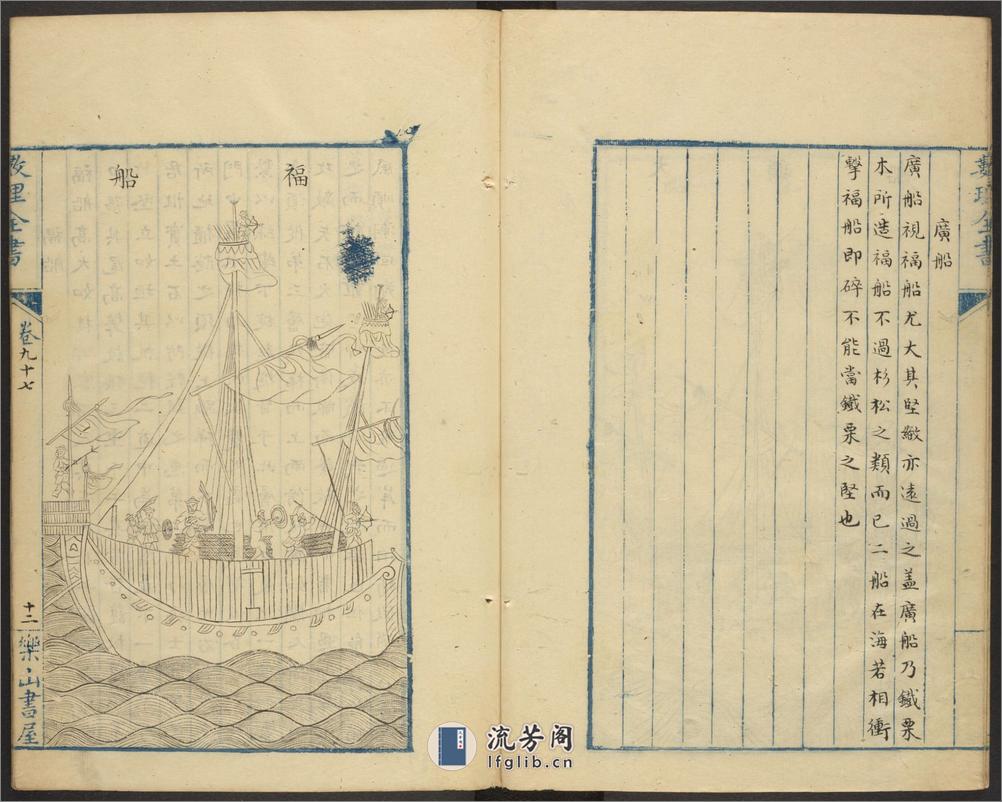 廣船
廣船視福船尤大其堅緻亦遠過之蓋廣船乃鐵栗
木所造福船不過杉松之類而已二船在海若相衝
擊福船即碎不能當鐵栗之堅也
福船
卷九十七
十二
樂山書屋
流芳阁
lfglib.cn